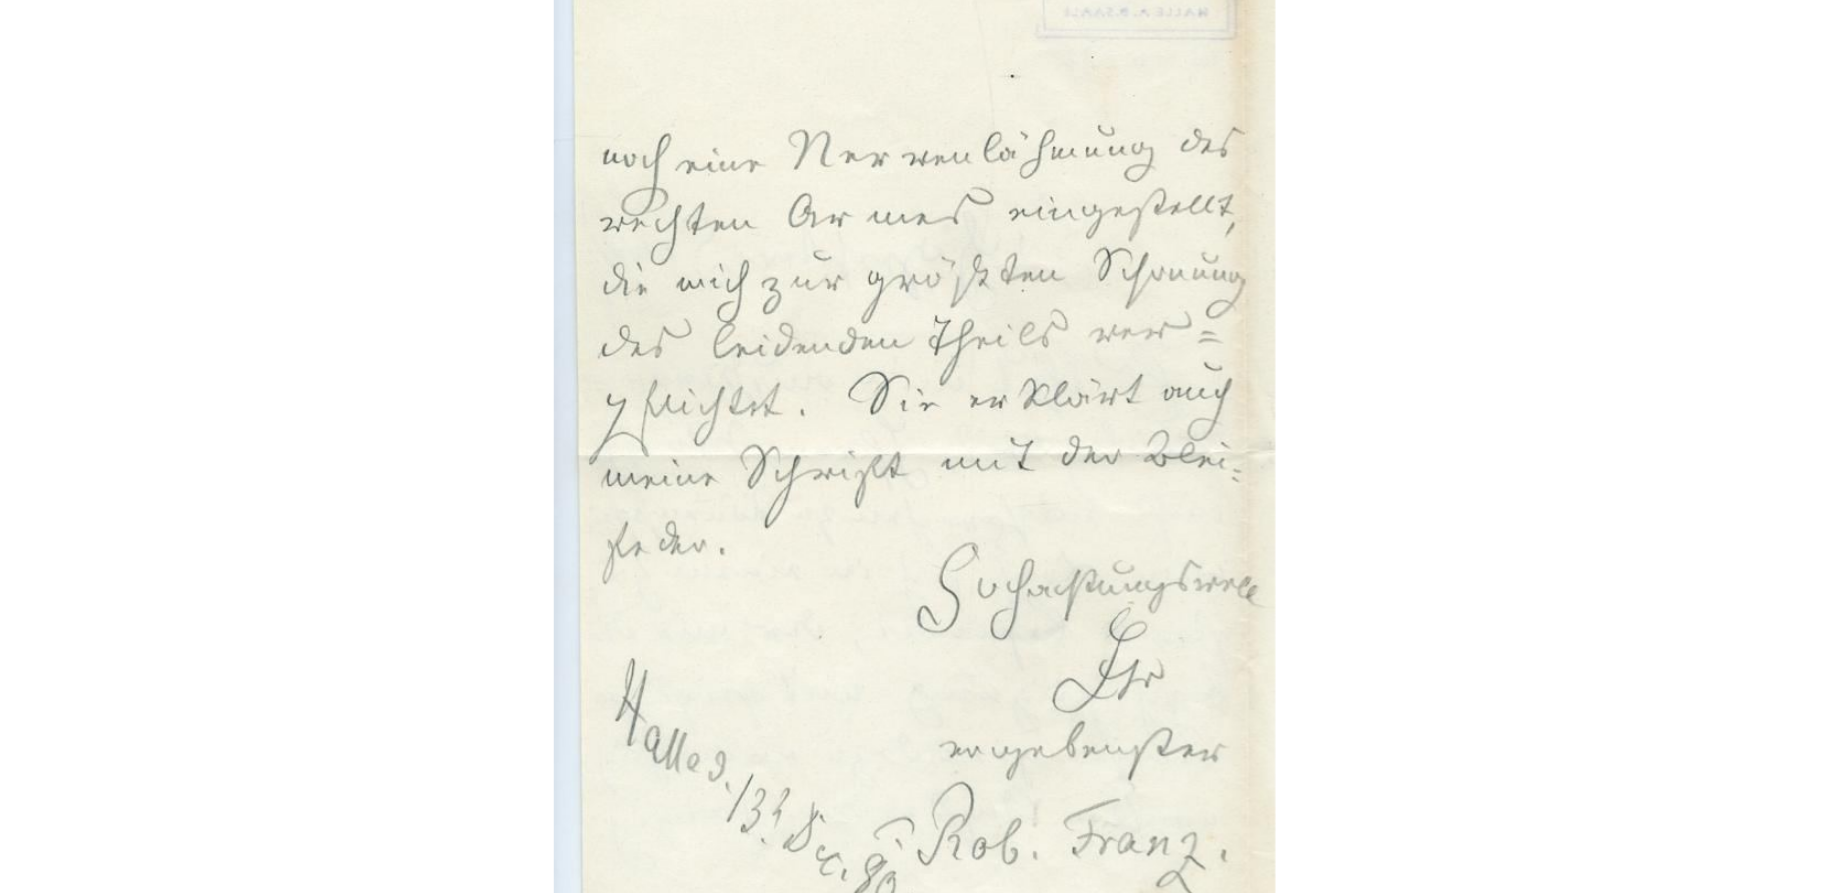 noch eine Nervenlähmung des
rechten Armes eingestellt,
die mich zur größten Schonung
des leidenden Theils ver=
pflichtet. Sie erklärt auch
meine Schrift mit der Blei=
feder.
Hochachtungsvoll
Ihr
ergebenster
Rob. Franz.
Halle d. 13t Dec. 89